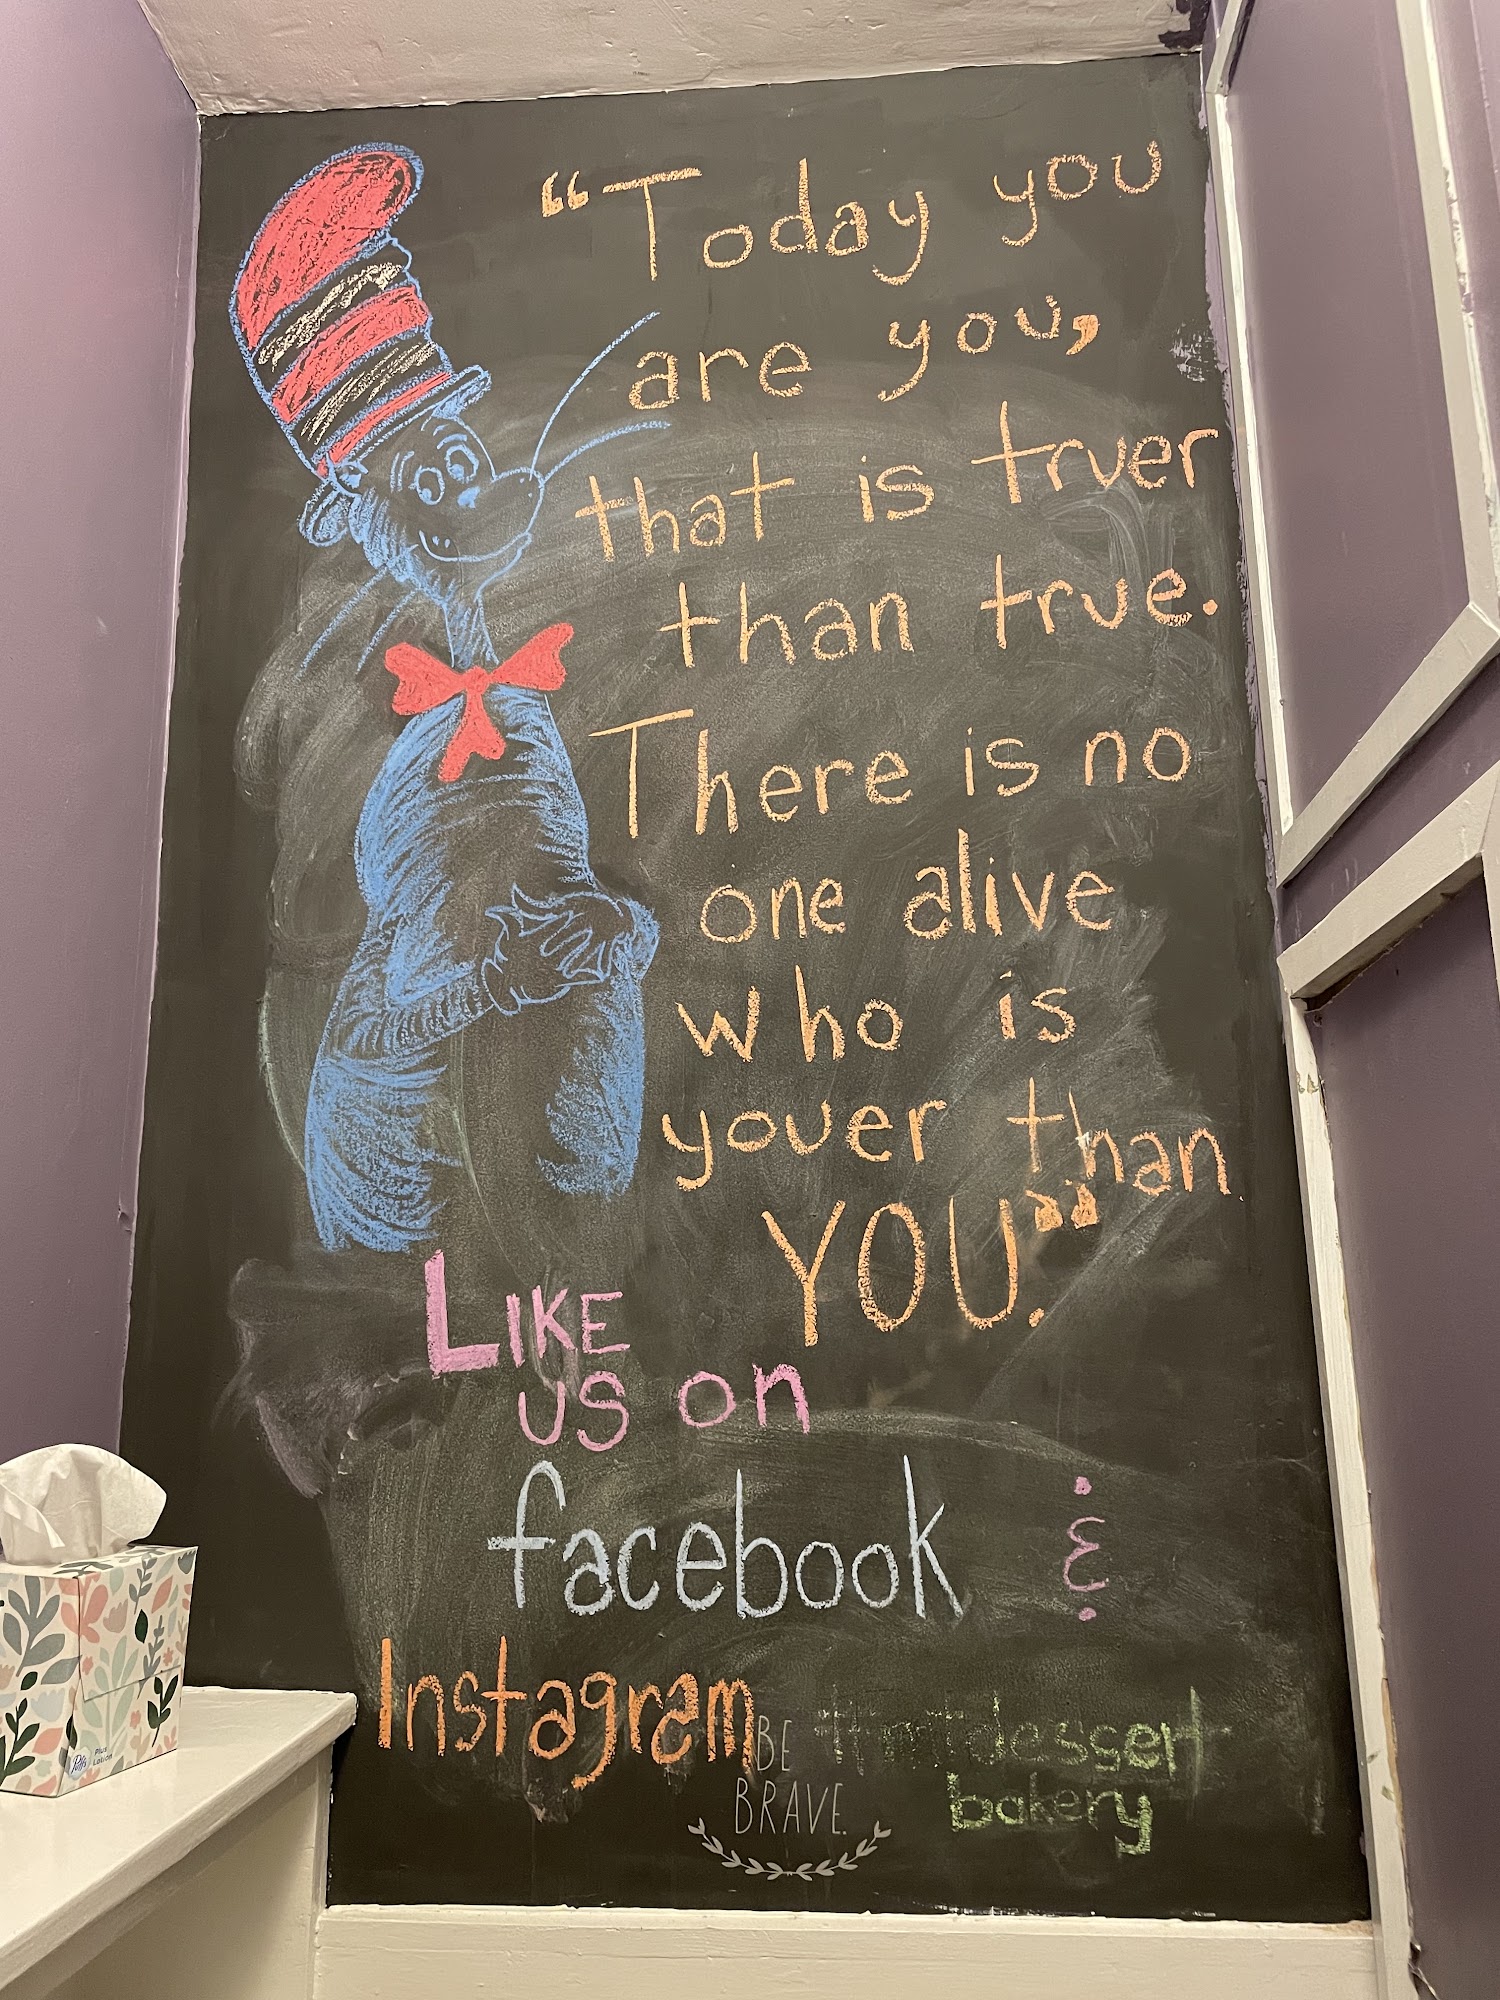 “Today you
are you,
that is truer
than true.
There is no
one alive
who is
youer than
YOU.”
LIKE
US on
facebook &
Instagram
BE
BRAVE.
dessert
bakery
Puffs Plus
Lotion